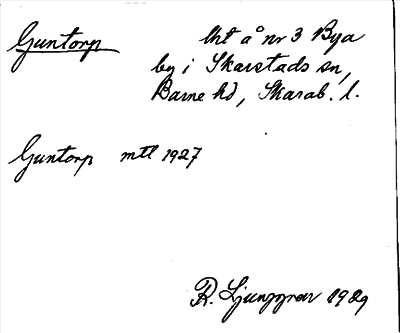 Guntorp lht å nr 3 Bya
by i Skarstads sn,
Barne hd, Skarab. l.
Guntorp mtl 1927
R. Ljunggren 1929